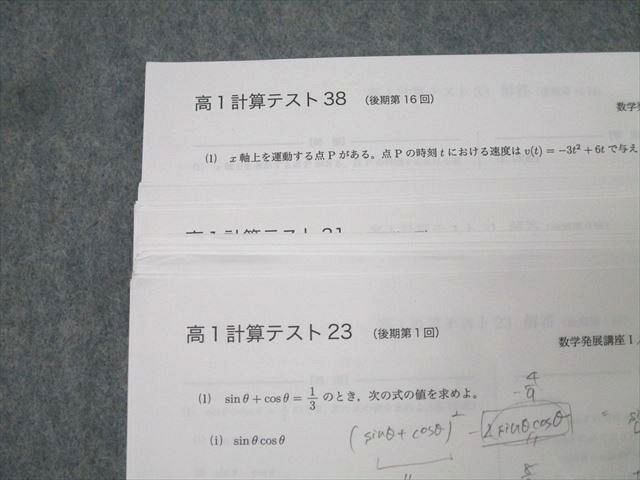 高1計算テスト38 （後期第16回）
数学発
(1) x 軸上を運動する点 P がある。点 P の時刻 t における速度は v(t) = −3t² + 6t で与え
高1計算テスト31
高1計算テスト23 （後期第1回）
数学発展講座 I
(1) sin θ + cos θ = 1/3 のとき，次の式の値を求めよ。
-4/9
(i) sin θ cos θ
(sinθ + cosθ)² - 2 sinθ cosθ =